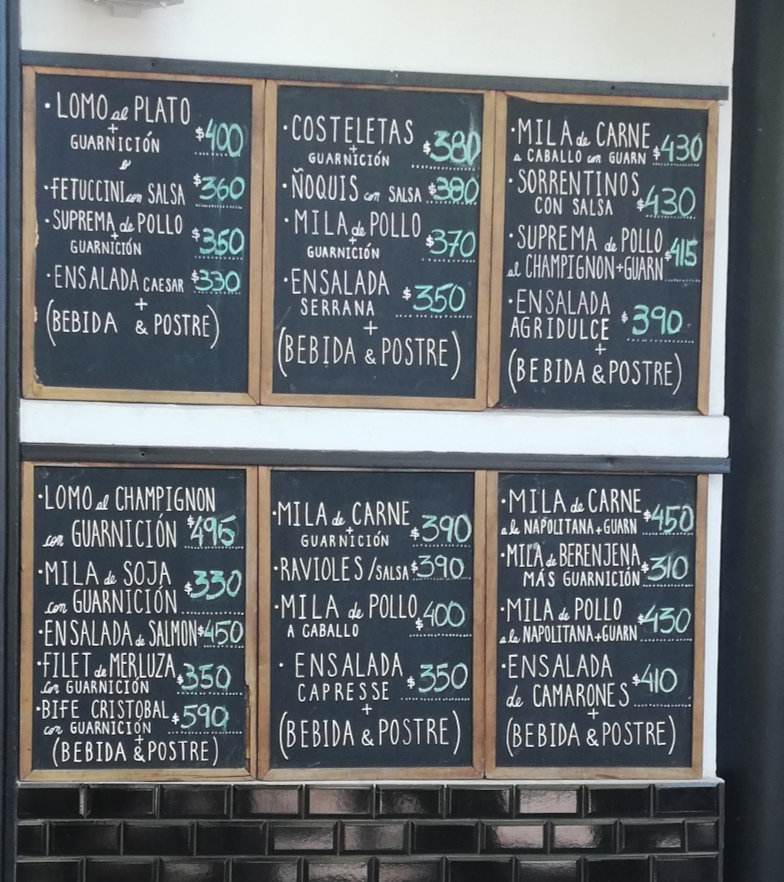 · LOMO al PLATO
+
GUARNICIÓN $400
y
· FETUCCINI con SALSA $360
· SUPREMA de POLLO
+
GUARNICIÓN $350
· ENSALADA CAESAR $330
+
(BEBIDA & POSTRE)
· COSTELETAS
+
GUARNICIÓN $380
· ÑOQUIS con SALSA $380
· MILA de POLLO
+
GUARNICIÓN $370
· ENSALADA
SERRANA $350
+
(BEBIDA & POSTRE)
· MILA de CARNE
a CABALLO con GUARN $430
· SORRENTINOS
CON SALSA $430
· SUPREMA de POLLO
al CHAMPIGNON+GUARN $415
· ENSALADA
AGRIDULCE $390
+
(BEBIDA & POSTRE)
· LOMO al CHAMPIGNON
con GUARNICIÓN $495
· MILA de SOJA
con GUARNICIÓN $330
· ENSALADA de SALMON $450
· FILET de MERLUZA
con GUARNICIÓN $350
· BIFE CRISTOBAL
con GUARNICIÓN $590
+
(BEBIDA & POSTRE)
· MILA de CARNE
+
GUARNICIÓN $390
· RAVIOLES /SALSA $390
· MILA de POLLO
A CABALLO $400
· ENSALADA
CAPRESSE $350
+
(BEBIDA & POSTRE)
· MILA de CARNE
a la NAPOLITANA+GUARN $450
· MILA de BERENJENA
MÁS GUARNICIÓN $310
· MILA de POLLO
a la NAPOLITANA+GUARN $430
· ENSALADA
de CAMARONES $410
+
(BEBIDA & POSTRE)